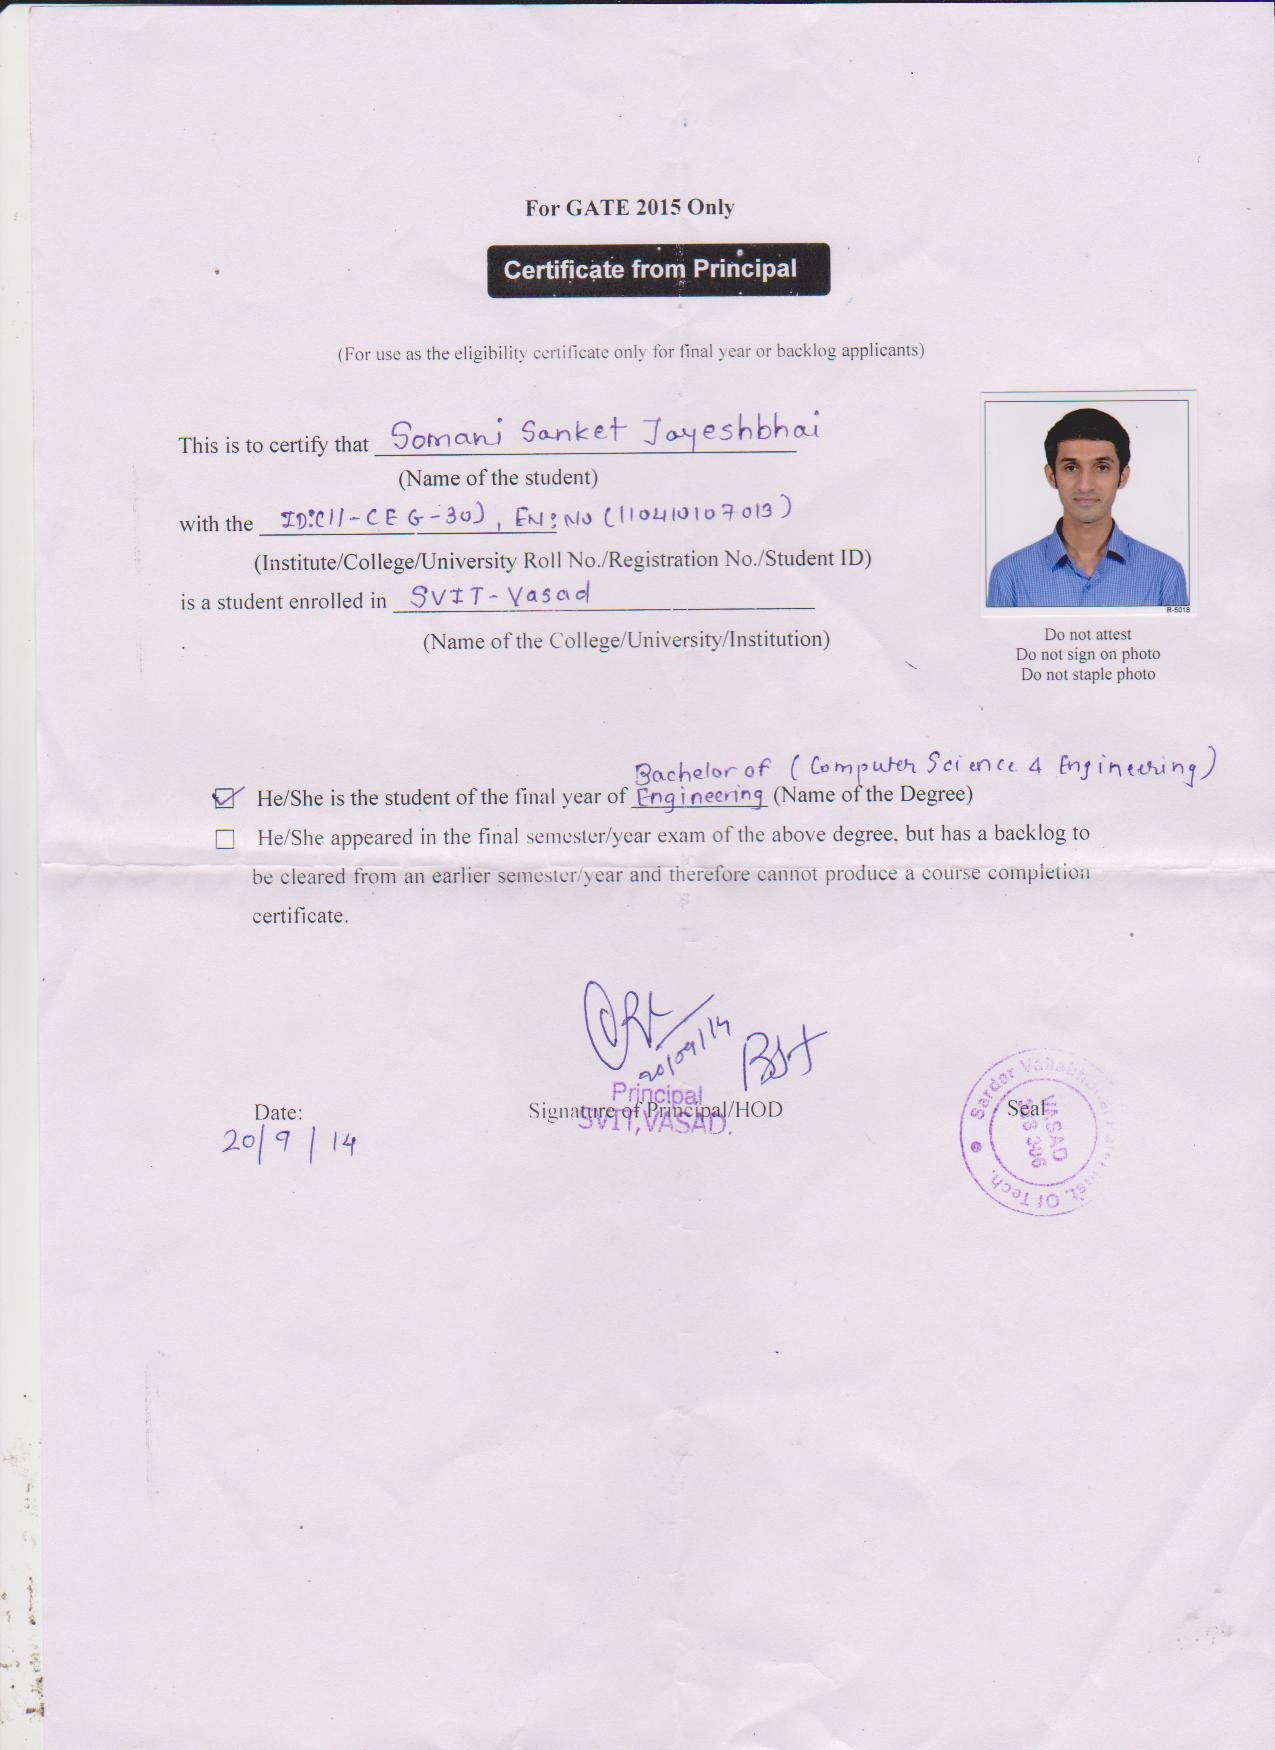 For GATE 2015 Only
Certificate from Principal
(For use as the eligibility certificate only for final year or backlog applicants)
This is to certify that Somani Sanket Jayeshbhai
(Name of the student)
with the ID:(11-CEG-30), EN:NO (110410107013)
(Institute/College/University Roll No./Registration No./Student ID)
is a student enrolled in SVIT-Vasad
(Name of the College/University/Institution)
R-5018
Do not attest
Do not sign on photo
Do not staple photo
Bachelor of (Computer Science & Engineering)
He/She is the student of the final year of Engineering (Name of the Degree)
He/She appeared in the final semester/year exam of the above degree, but has a backlog to
be cleared from an earlier semester/year and therefore cannot produce a course completion
certificate.
20/09/14
Principal
Signature of Principal/HOD
SVIT, VASAD.
Date:
20/9/14
Seal
Sardar Vallabhbhai Patel Inst. Of Tech.
VASAD
388 306